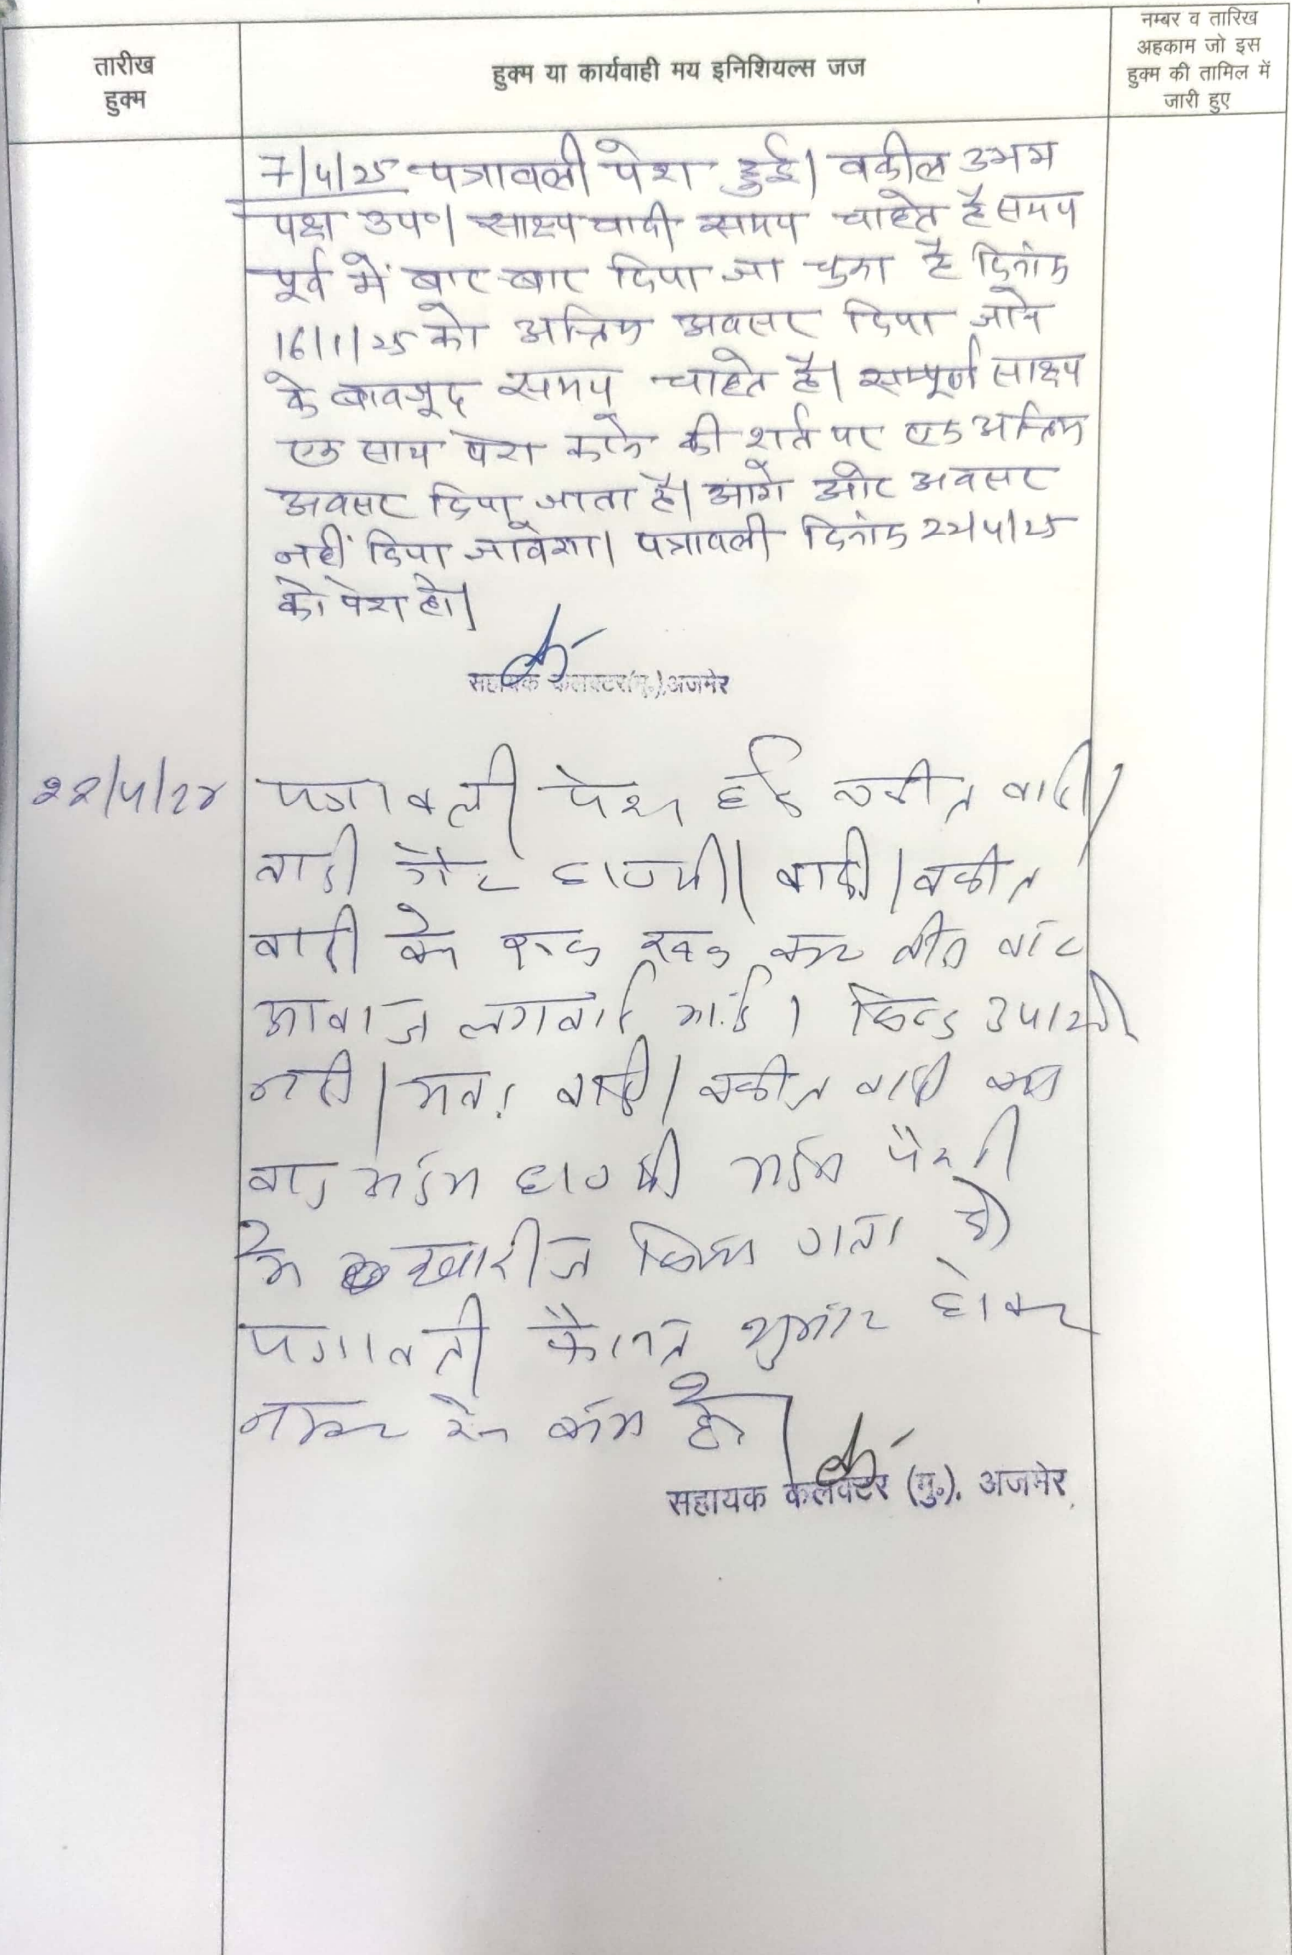 तारीख
हुक्म
हुक्म या कार्यवाही मय इनिशियल्स जज
नम्बर व तारिख
अहकाम जो इस
हुक्म की तामिल में
जारी हुए
7/4/25 पत्रावली पेश हुई। वकील उभय
पक्ष उप०। साक्ष्य वादी समय चाहते है समय
पूर्व में बार-बार दिया जा चुका है दिनांक
16/1/25 को अन्तिम अवसर दिया जाने
के बावजूद समय चाहते है। सम्पूर्ण साक्ष्य
एक साथ पेश करने की शर्त पर एक अन्तिम
अवसर दिया जाता है। आगे और अवसर
नहीं दिया जावेगा। पत्रावली दिनांक 22/4/25
को पेश हो।
सहायक कलक्टर(मु.),अजमेर
22/4/25 पत्रावली पेश हुई वकील वादी/
वादी गैर हाजरी। वादी/वकील
वादी को रूक रूक कर तीन बार
आवाज लगवाई गई। किन्तु उपस्थित
नही। अतः वादी/वकील वादी का
वाद अदम हाजरी अदम पैरवी
में खारीज किया जाता है।
पत्रावली फैसल शुमार होकर
नम्बर से कम हो।
सहायक कलक्टर (मु०), अजमेर